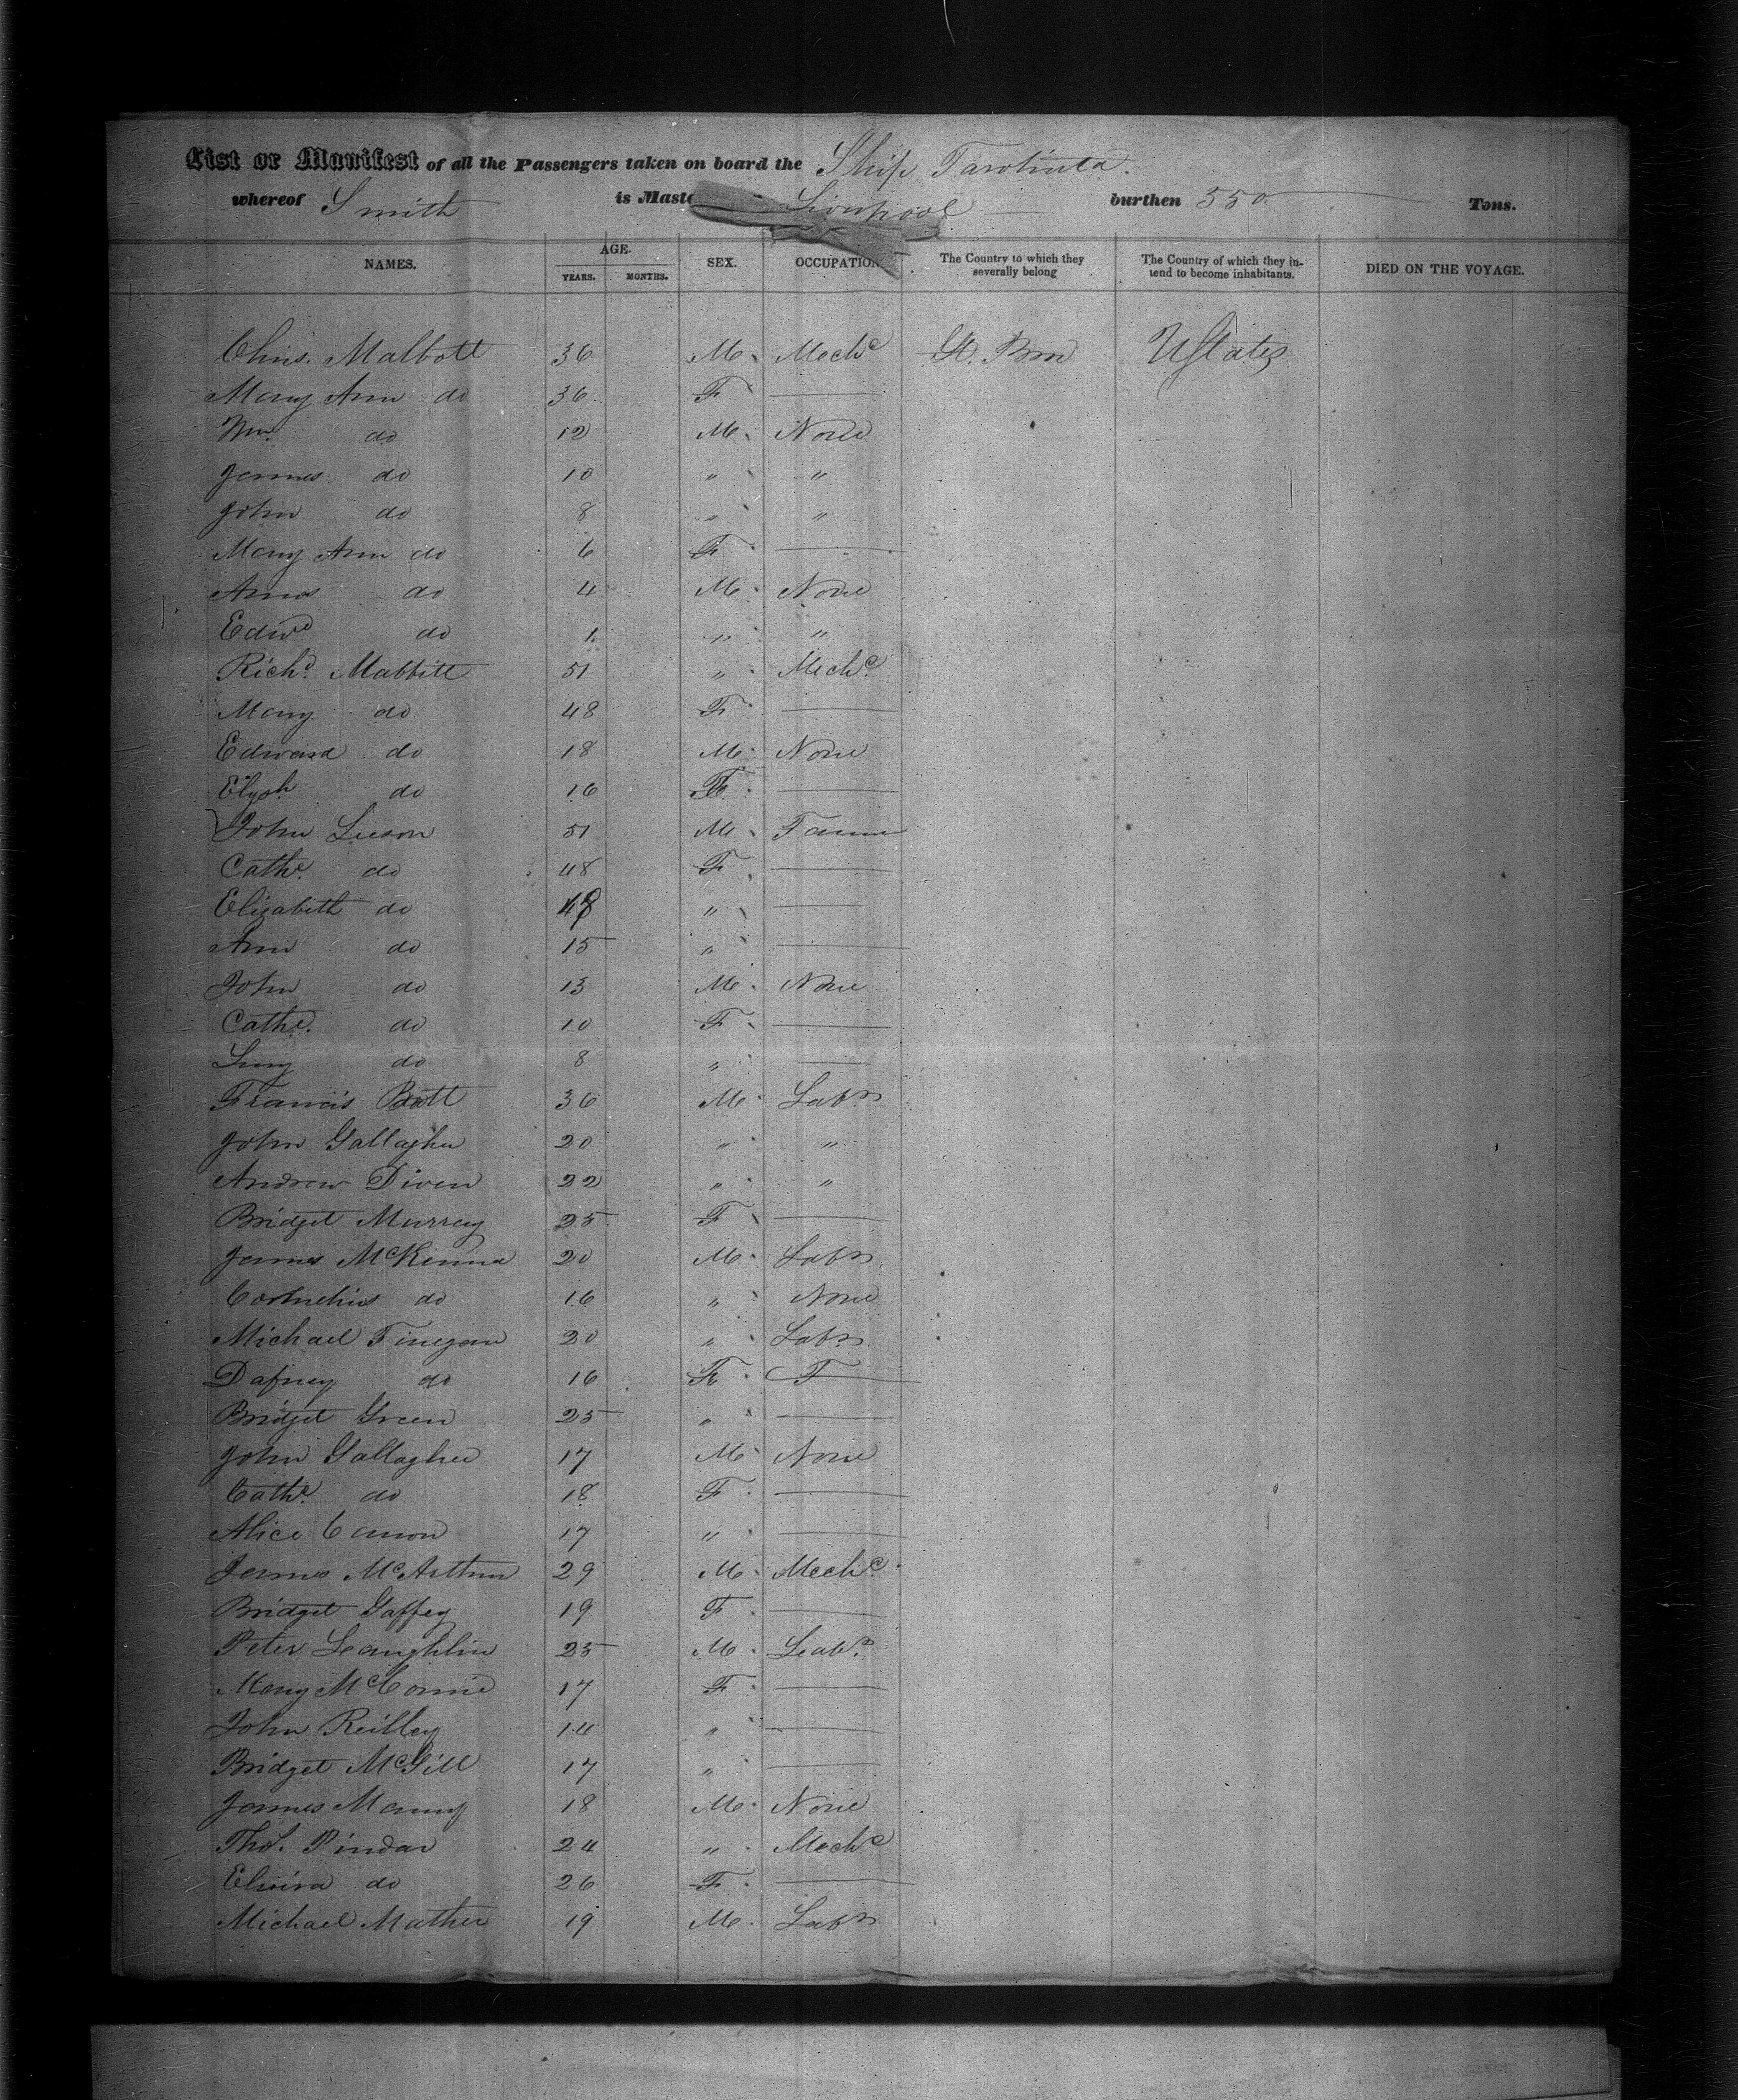 List or Manifest of all the Passengers taken on board the Ship Tarolinta.
whereof Smith is Maste Liverpool burthen 550 Tons.
NAMES. AGE. YEARS. MONTHS. SEX. OCCUPATION The Country to which they severally belong The Country of which they intend to become inhabitants. DIED ON THE VOYAGE.
Chris. Malbott 36 M Mechc Gt. Brn UStates
Mary Ann do 36 F —
Wm. do 12 M None
James do 10 " "
John do 8 " "
Mary Ann do 6 F —
Amos do 4 M None
Edwd do 1 " "
Richd Mabbitt 51 " Mechc
Mary do 48 F —
Edward do 18 M None
Elizth do 16 F —
John Leeson 51 M Farmer
Cathe. do 48 F —
Elizabeth do " —
Ann do 15 " —
John do 13 M None
Cathe. do 10 F —
Lucy do 8 " —
Francis Batt 36 M Labr
John Gallagher 20 " "
Andrew Diven 22 " "
Bridget Murray 25 F —
James McKenna 20 M Labr
Cornelius do 16 " None
Michael Finegan 20 " Labr
Dafney do 16 F F
Bridget Green 25 " —
John Gallagher 17 M None
Cathe. do 18 F —
Alice Canon 17 " —
James McArthur 29 M Mechc
Bridget Gaffey 19 F —
Peter Laughlin 25 M Labr
Mary McCormic 17 F —
John Reilley 14 " —
Bridget McGill 17 " —
James Manny 18 M None
Thos. Pindar 24 " Mechc
Elvira do 26 F —
Michael Mather 19 M Labr